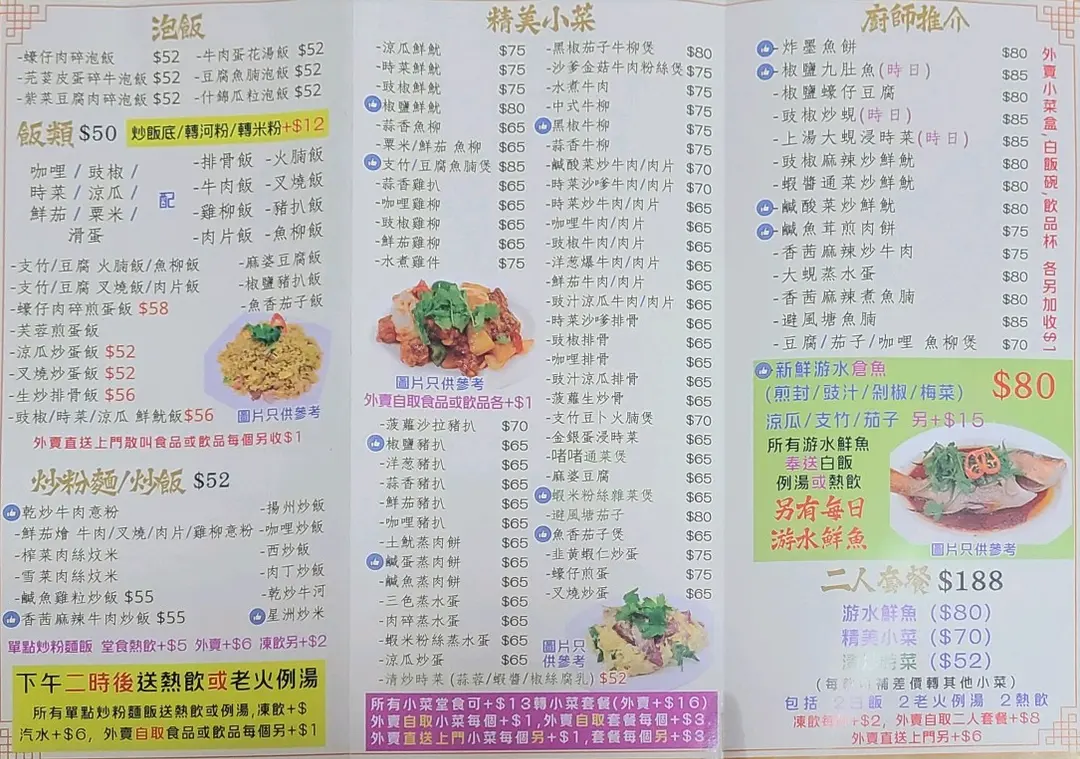 泡飯
-蠔仔肉碎泡飯 $52 -牛肉蛋花湯飯 $52
-芫茜皮蛋碎牛泡飯 $52 -豆腐魚腩泡飯 $52
-紫菜豆腐肉碎泡飯 $52 -什錦瓜粒泡飯 $52
飯類 $50 炒飯底/轉河粉/轉米粉+$12
咖喱 / 豉椒 /
時菜 / 涼瓜 /
鮮茄 / 粟米 /
滑蛋
配
-排骨飯 -火腩飯
-牛肉飯 -叉燒飯
-雞柳飯 -豬扒飯
-肉片飯 -魚柳飯
-支竹/豆腐 火腩飯/魚柳飯 -麻婆豆腐飯
-支竹/豆腐 叉燒飯/肉片飯 -椒鹽豬扒飯
-蠔仔肉碎煎蛋飯 $58 -魚香茄子飯
-芙蓉煎蛋飯
-涼瓜炒蛋飯 $52
-叉燒炒蛋飯 $52
-生炒排骨飯 $56
-豉椒/時菜/涼瓜 鮮魷飯$56 圖片只供參考
外賣直送上門散叫食品或飲品每個另收$1
炒粉麵/炒飯 $52
乾炒牛肉意粉 -揚州炒飯
-鮮茄燴 牛肉/叉燒/肉片/雞柳意粉 -咖喱炒飯
-榨菜肉絲炆米 -西炒飯
-雪菜肉絲炆米 -肉丁炒飯
-鹹魚雞粒炒飯 $55 -乾炒牛河
香茜麻辣牛肉炒飯 $55 星洲炒米
單點炒粉麵飯 堂食熱飲+$5 外賣+$6 凍飲另+$2
下午二時後送熱飲或老火例湯
所有單點炒粉麵飯送熱飲或例湯,凍飲+$
汽水+$6, 外賣自取食品或飲品每個另+$1
精美小菜
-涼瓜鮮魷 $75
-時菜鮮魷 $75
-豉椒鮮魷 $75
椒鹽鮮魷 $80
-蒜香魚柳 $65
-粟米/鮮茄 魚柳 $65
支竹/豆腐魚腩煲 $85
-蒜香雞扒 $65
-咖喱雞柳 $65
-豉椒雞柳 $65
-鮮茄雞柳 $65
-水煮雞件 $75
圖片只供參考
外賣自取食品或飲品各+$1
-菠蘿沙拉豬扒 $70
椒鹽豬扒 $65
-洋葱豬扒 $65
-蒜香豬扒 $65
-鮮茄豬扒 $65
-咖喱豬扒 $65
-土魷蒸肉餅 $65
鹹蛋蒸肉餅 $65
-鹹魚蒸肉餅 $65
-三色蒸水蛋 $65
-肉碎蒸水蛋 $65
-蝦米粉絲蒸水蛋 $65
-涼瓜炒蛋 $65
-清炒時菜 (蒜蓉/蝦醬/椒絲腐乳) $52
-黑椒茄子牛柳煲 $80
-沙爹金菇牛肉粉絲煲 $75
-水煮牛肉 $75
-中式牛柳 $75
黑椒牛柳 $75
-蒜香牛柳 $75
-鹹酸菜炒牛肉/肉片 $70
-時菜沙爹牛肉/肉片 $70
-時菜炒牛肉/肉片 $65
-咖喱牛肉/肉片 $65
-豉椒牛肉/肉片 $65
-洋葱爆牛肉/肉片 $65
-鮮茄牛肉/肉片 $65
-豉汁涼瓜牛肉/肉片 $65
-時菜沙爹排骨 $65
-豉椒排骨 $65
-咖喱排骨 $65
-豉汁涼瓜排骨 $65
-菠蘿生炒骨 $65
-支竹豆卜火腩煲 $70
-金銀蛋浸時菜 $65
-啫啫通菜煲 $65
-麻婆豆腐 $65
蝦米粉絲雜菜煲 $65
-避風塘茄子 $80
魚香茄子煲 $65
-韭黃蝦仁炒蛋 $75
-蠔仔煎蛋 $75
-叉燒炒蛋 $65
圖片只
供參考
所有小菜堂食可+$13轉小菜套餐(外賣+$16)
外賣自取小菜每個+$1,外賣自取套餐每個+$3
外賣直送上門小菜每個另+$1,套餐每個另+$3
廚師推介
炸墨魚餅 $80
椒鹽九肚魚(時日) $85
-椒鹽蠔仔豆腐 $80
-豉椒炒蜆(時日) $85
-上湯大蜆浸時菜(時日) $85
-豉椒麻辣炒鮮魷 $80
-蝦醬通菜炒鮮魷 $80
鹹酸菜炒鮮魷 $80
鹹魚茸煎肉餅 $75
-香茜麻辣炒牛肉 $75
-大蜆蒸水蛋 $80
-香茜麻辣煮魚腩 $80
-避風塘魚腩 $85
-豆腐/茄子/咖喱 魚柳煲 $70
外賣小菜盒,白飯碗,飲品杯 各另加收$1
新鮮游水倉魚
(煎封/豉汁/剁椒/梅菜) $80
涼瓜/支竹/茄子 另+$15
所有游水鮮魚
奉送白飯
例湯或熱飲
另有每日
游水鮮魚
圖片只供參考
二人套餐 $188
游水鮮魚 ($80)
精美小菜 ($70)
時菜 ($52)
補差價轉其他小菜)
包括 2白飯 2老火例湯 2熱飲
凍飲每 +$2, 外賣自取二人套餐+$8
外賣直送上門另+$6